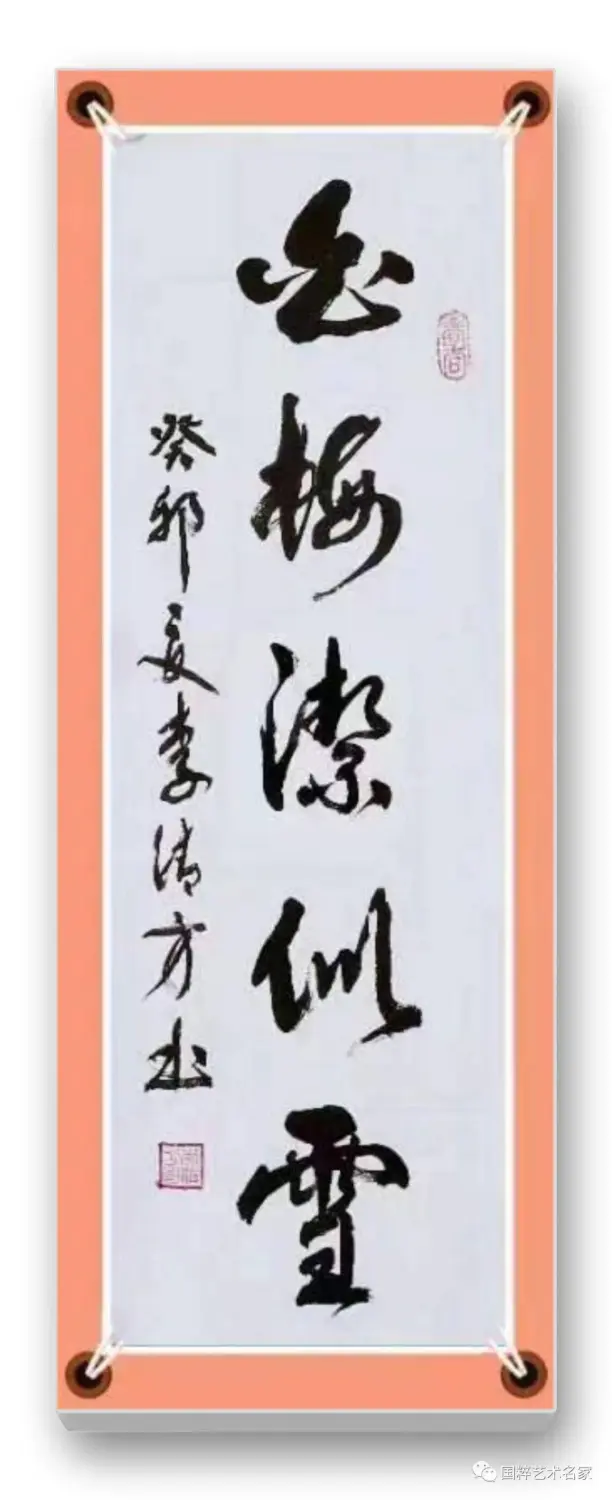 白梅潔似雪
癸卯夏李清方书
国粹艺术名家